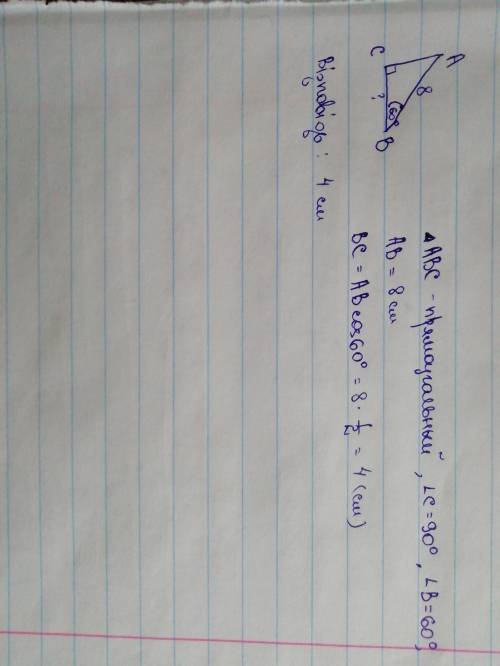 A
8
C
?
60°
B
△ABC - прямоугальный, ∠C = 90°, ∠B = 60°,
AB = 8 см
BC = AB cos 60° = 8 · 1/2 = 4 (см)
Відповідь: 4 см